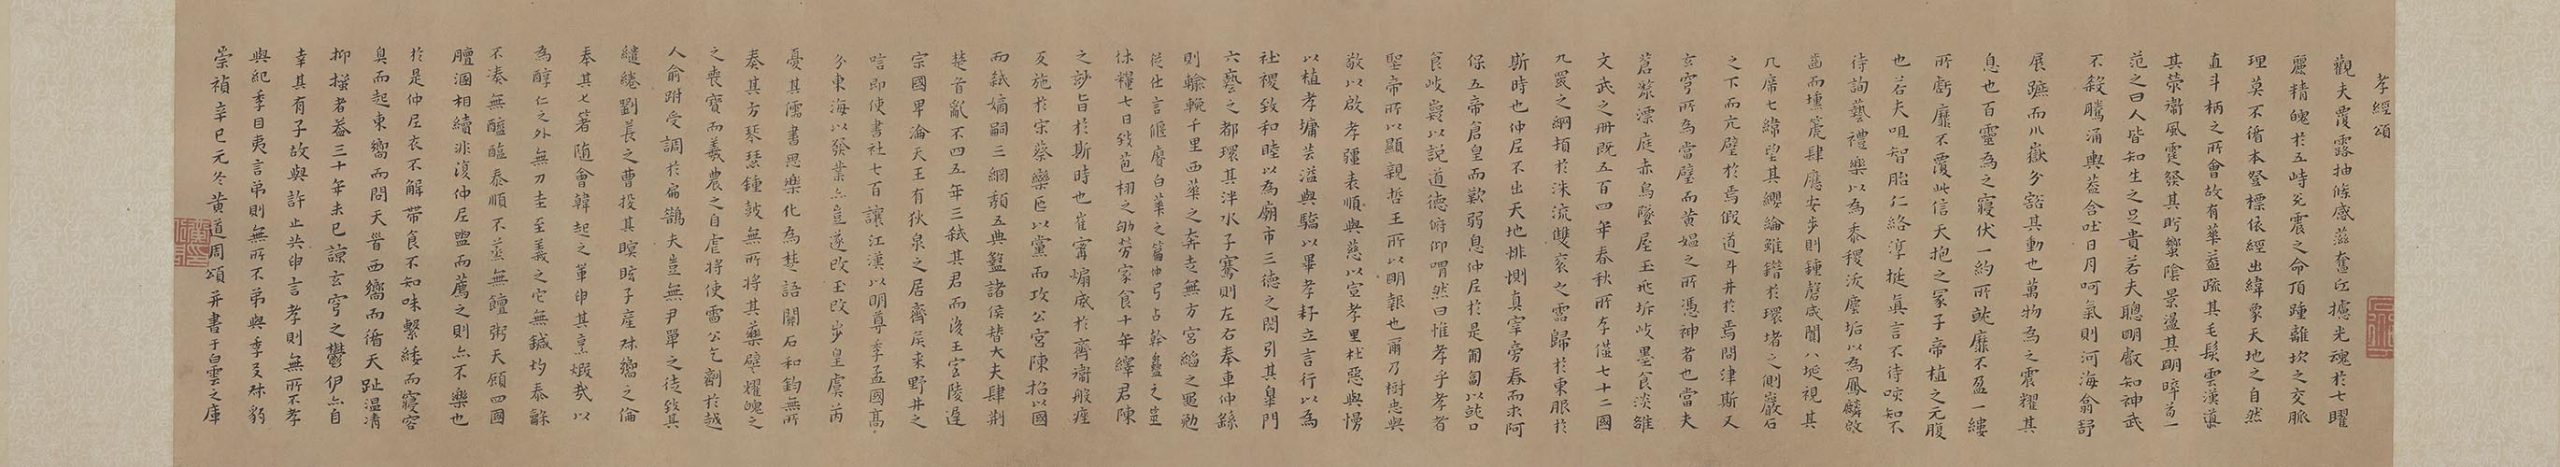 孝經頌
觀夫覆露抽條感蕊奮江攄光魂於七曜
麗精魄於五峙允震之命頂踵離坎之交脈
理莫不循本發標依經出緯蒙天地之自然
直斗柄之所會故有華蓋疏其毛髮雲漢導
其滎衛風霆發其盻蠁陰景盪其明啐首一
范之曰人皆知生之足貴若夫聰明叡知神武
不殺騰涌輿蓋含吐日月呵氣則河海翕舒
展蹠而川嶽分豁其動也萬物為之震耀其
息也百靈為之寢伏一約所跐靡不盈一縷
所虧靡不覆此信天抱之冢子帝植之元腹
也若夫咀智胎仁絡淳挻真言不待啖知不
待詢藝禮樂以為黍稷汰塵垢以為鳳麟啟
齒而壎篪肆應安步則鍾磬咸閒八埏視其
几席七緯望其纓綸雖錯於環堵之側巖石
之下而亢璧於焉假道斗井於焉問津斯又
玄穹所為當璧而黃媼之所憑神者也當夫
蒼漦漂庭赤烏墜屋玉兆坼歧墨食淡雒
文武之冊既五百四年春秋所存僅七十二國
九罭之綱頓於洙流雙袞之需歸於東服於
斯時也仲尼不出天地悱惻真宰旁眷而求阿
保五帝倉皇而歎弱息仲尼於是匍匐以就口
食岐嶷以說道德俯仰喟然曰惟孝乎孝者
聖帝所以顯親哲王所以明報也爾乃樹忠與
敬以啟孝疆表順與慈以宣孝里杜惡與慢
以植孝墉芸溢與驕以畢孝耔立言行以為
社稷致和睦以為廟市三德之閎引其皋門
六藝之都環其泮水子騫則左右奉車仲繇
則輪輓千里西華之奔走無方宮縚之黽勉
從仕言偃賡白華之篇仲弓占幹蠱之筮
休糧七日發苞栩之劬勞家食十年繹君陳
之訏旨於斯時也崔甯煽威於齊衛般痤
爰施於宋蔡欒卮以黨而攻公宮陳招以國
而弒嫡嗣三綱頹五典盭諸侯替大夫肆荆
楚首亂不四五年三弒其君而後王室陵遲
宗國卑淪天王有狄泉之居齊侯來野井之
唁即使書社七百讓江漢以明尊季孟國高
分東海以發業亦豈遂改玉改步皇虞芮
憂其儒書思樂化為楚語關石和鈞無所
奏其方琴瑟鍾鼓無所將其藥壁耀魄之
之喪寶而羲農之自虐將使雷公乞劑於越
人俞跗受調於扁鵲夫豈無尹單之徒致其
繾綣劉萇之曹投其瞑眩子產叔嚮之倫
奉其匕箸隨會韓起之輩申其烹煅哉以
為醇仁之外無刀圭至義之它無鍼灼泰龢
不湊無醯醢泰順不蒸無饘粥天願四國
膻溷相續非復仲尼盥而薦之則亦不樂也
於是仲尼衣不解帶食不知味繫緌而寢容
臭而起東嚮而問天晉西嚮而循天趾溫清
抑搔者蓋三十年未已諒玄穹之鬱伊亦自
幸其有子故與許止共申言孝則無所不孝
與紀季目夷言弟則無所不弟與季友叔肸
崇禎辛巳元冬黃道周頌并書于白雲之庫